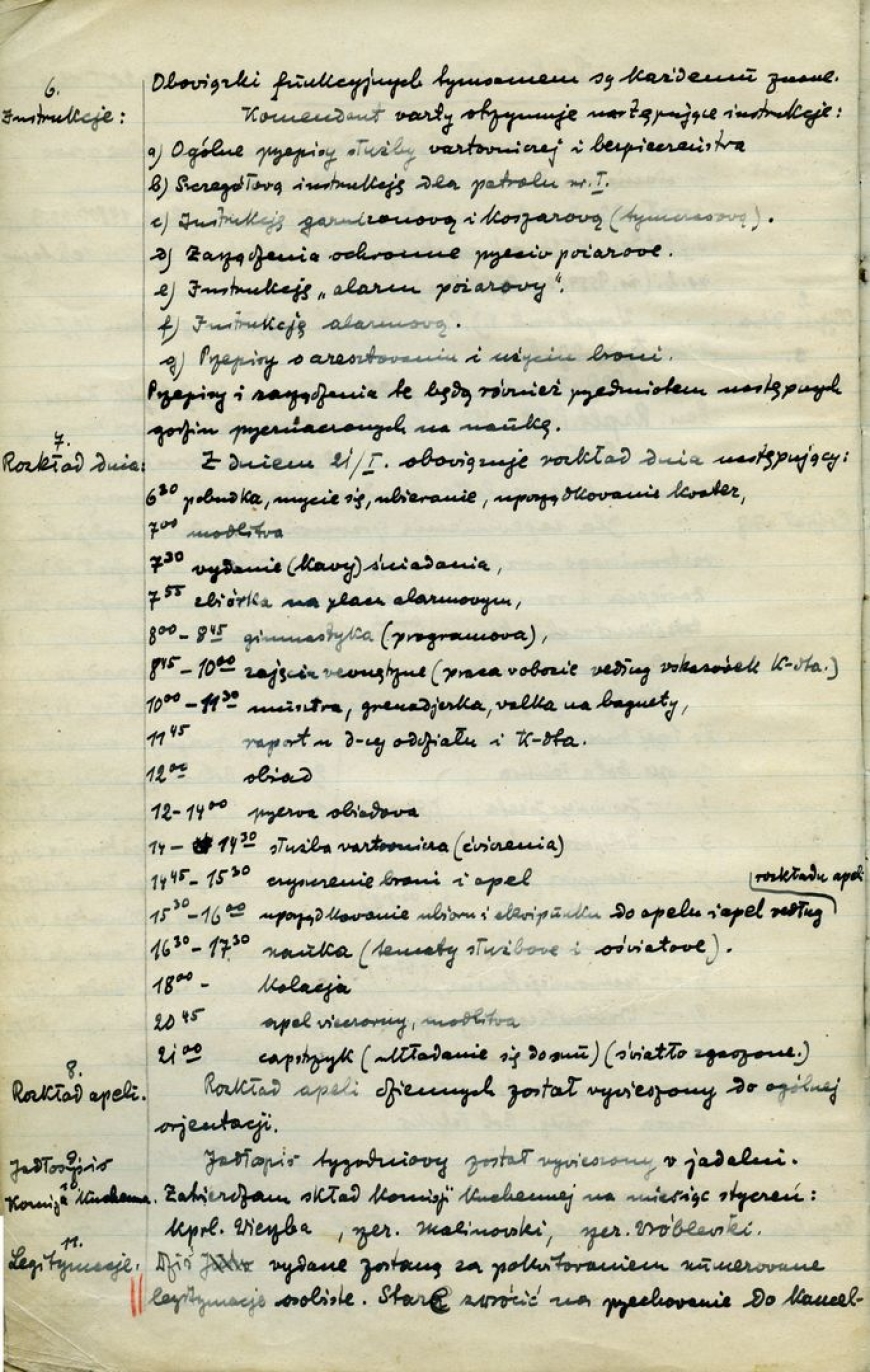 Obowiązki funkcyjnych tymsamem są każdemu znane.
6.
Instrukcje:
Komendant warty otrzymuje następujące instrukcje:
a) Ogólne przepisy służby wartowniczej i bezpieczeństwa
b) Szczegółową instrukcję dla patrolu nr. I.
c) Instrukcję garnizonową i koszarową (tymczasową).
d) Zarządzenia ochronne przeciw pożarowe.
e) Instrukcję „alarm pożarowy".
f) Instrukcję alarmową.
g) Przepisy o aresztowaniu i użyciu broni.
Przepisy i zarządzenia te będą również przedmiotem następnych
godzin przeznaczonych na naukę.
7.
Rozkład dnia:
Z dniem 21/I. obowiązuje rozkład dnia następujący:
6³⁰ pobudka, mycie się, ubieranie, uporządkowanie kwater,
7⁰⁰ modlitwa
7³⁰ wydanie (kawy) śniadania,
7⁵⁵ zbiórka na placu alarmowym,
8⁰⁰ - 8⁴⁵ gimnastyka (programowa),
8⁴⁵ - 10⁰⁰ zajęcia wewnętrzne (praca w obozie według wskazówek K-dta.)
10⁰⁰ - 11³⁰ musztra, grenadjerka, walka na bagnety,
11⁴⁵ raport u d-cy oddziału i K-dta.
12⁰⁰ obiad
12-14⁰⁰ przerwa obiadowa
14 - 14³⁰ służba wartownicza (ćwiczenia)
14⁴⁵ - 15³⁰ czyszczenie broni i apel
15³⁰ - 16⁰⁰ uporządkowanie ubioru i ekwipunku do apelu i apel według
rozkładu apeli
16³⁰ - 17³⁰ nauka (tematy służbowe i oświatowe).
18⁰⁰ - kolacja
20⁴⁵ apel wieczorny, modlitwa
21⁰⁰ capstrzyk (układanie się do snu) (światło zgaszone.)
8.
Rozkład apeli.
Rozkład apeli dziennych został wywieszony do ogólnej
orjentacji.
9.
Jadłospis
Jadłospis tygodniowy został wywieszony w jadalni.
10.
Komisja kuchenna.
Zatwierdzam skład Komisji Kuchennej na miesiąc styczeń:
kprl. , szer. Malinowski, szer. Wróblewski.
11.
Legitymacje.
Dziś wydane zostaną za pokwitowaniem numerowane
legitymacje osobiste. Stare zwrócić na przechowanie do kancel-